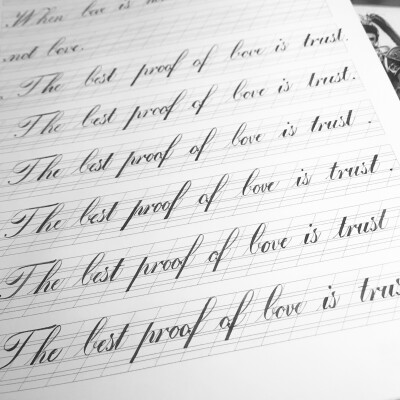 When love is
not love.
The best proof of love is trust.
The best proof of love is trust.
The best proof of love is trust.
The best proof of love is trust.
The best proof of love is trust
The best proof of love is trus